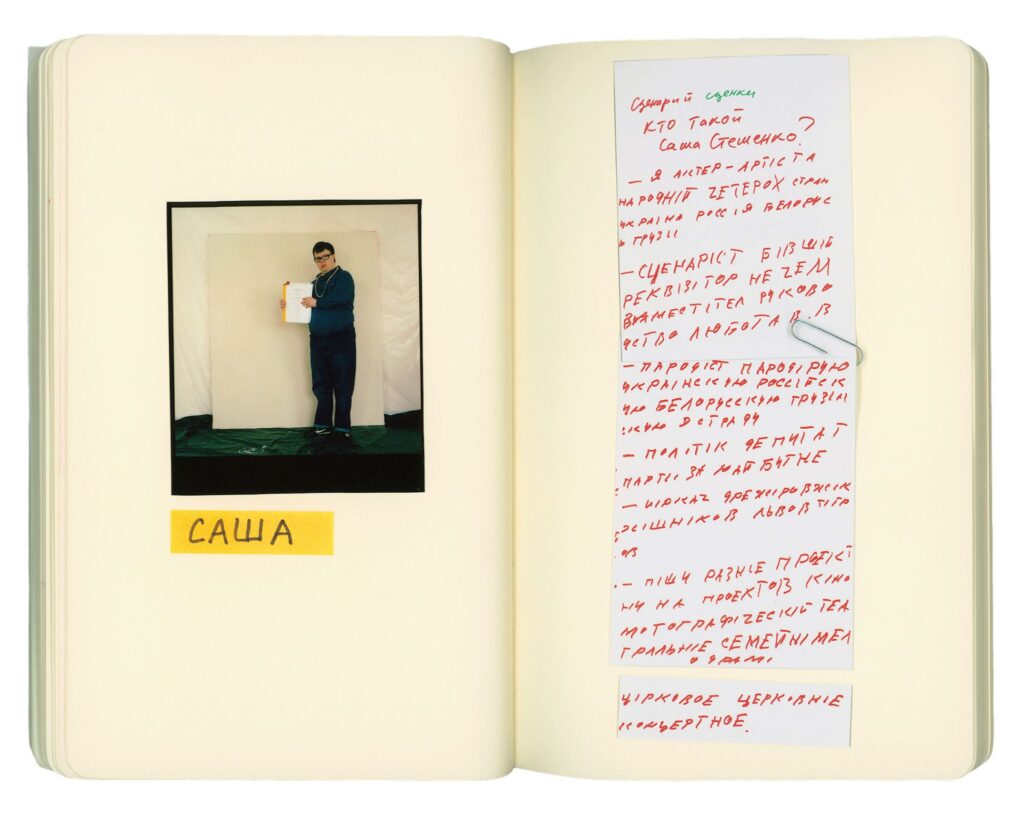 САША
Сценарий сценки
КТО ТАКОЙ
Саша Стешенко?
– Я АКТЕР-АРТІСТ А
НАРОДНІЙ ЧЕТЕРОХ СТРАН
УКРАІНА РОССІЯ БЕЛОРУС
Ь ГРУЗІІ
– СЦЕНАРІСТ БІВШІЙ
РЕКВІЗІТОР НЕ ЧЕМ
ЗАМЕСТІТЕЛ РУКОВО
УСТВО ЛЮБОТА В.В
– ПАРОДІСТ ПАРОДІРУЮ
УКРАІНСКУЮ РОССІЙСК
УЮ БЕЛОРУССКУЮ ГРУЗІН
СКУЮ ЭСТРАДУ
– ПОЛІТІК ДЕПУТАТ
ПАРТІІ ЗА МАЙБУТНЕ
– ЦІРКАЧ ДРЕСІРОВЖІК
ХІШНІКОВ ЛЬВОВ ТІГР
ОВ
– ПІШУ РАЗНІЕ ПРОЕКТ
НУ НА ПРОЕКТОВ КІНО
МОТОГРАФІЧЕСКІЙ ТЕА
ТРАЛЬНІЕ СЕМЕЙНІ МЕЛ
ОДРАМІ
ЦІРКОВОЕ ЦЕРКОВНІЕ
КОНЦЕРТНОЕ.